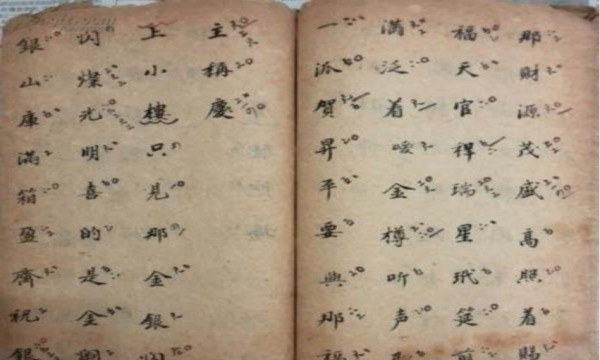 那財源茂盛高照着
福天官裎瑞星玳筵前
滿泛着噯金樽听声
一派賀昇平要與那福
主稱慶
上小樓只見那金銀閃
閃燦光明喜的是金
銀山庫滿箱盈齊祝銀